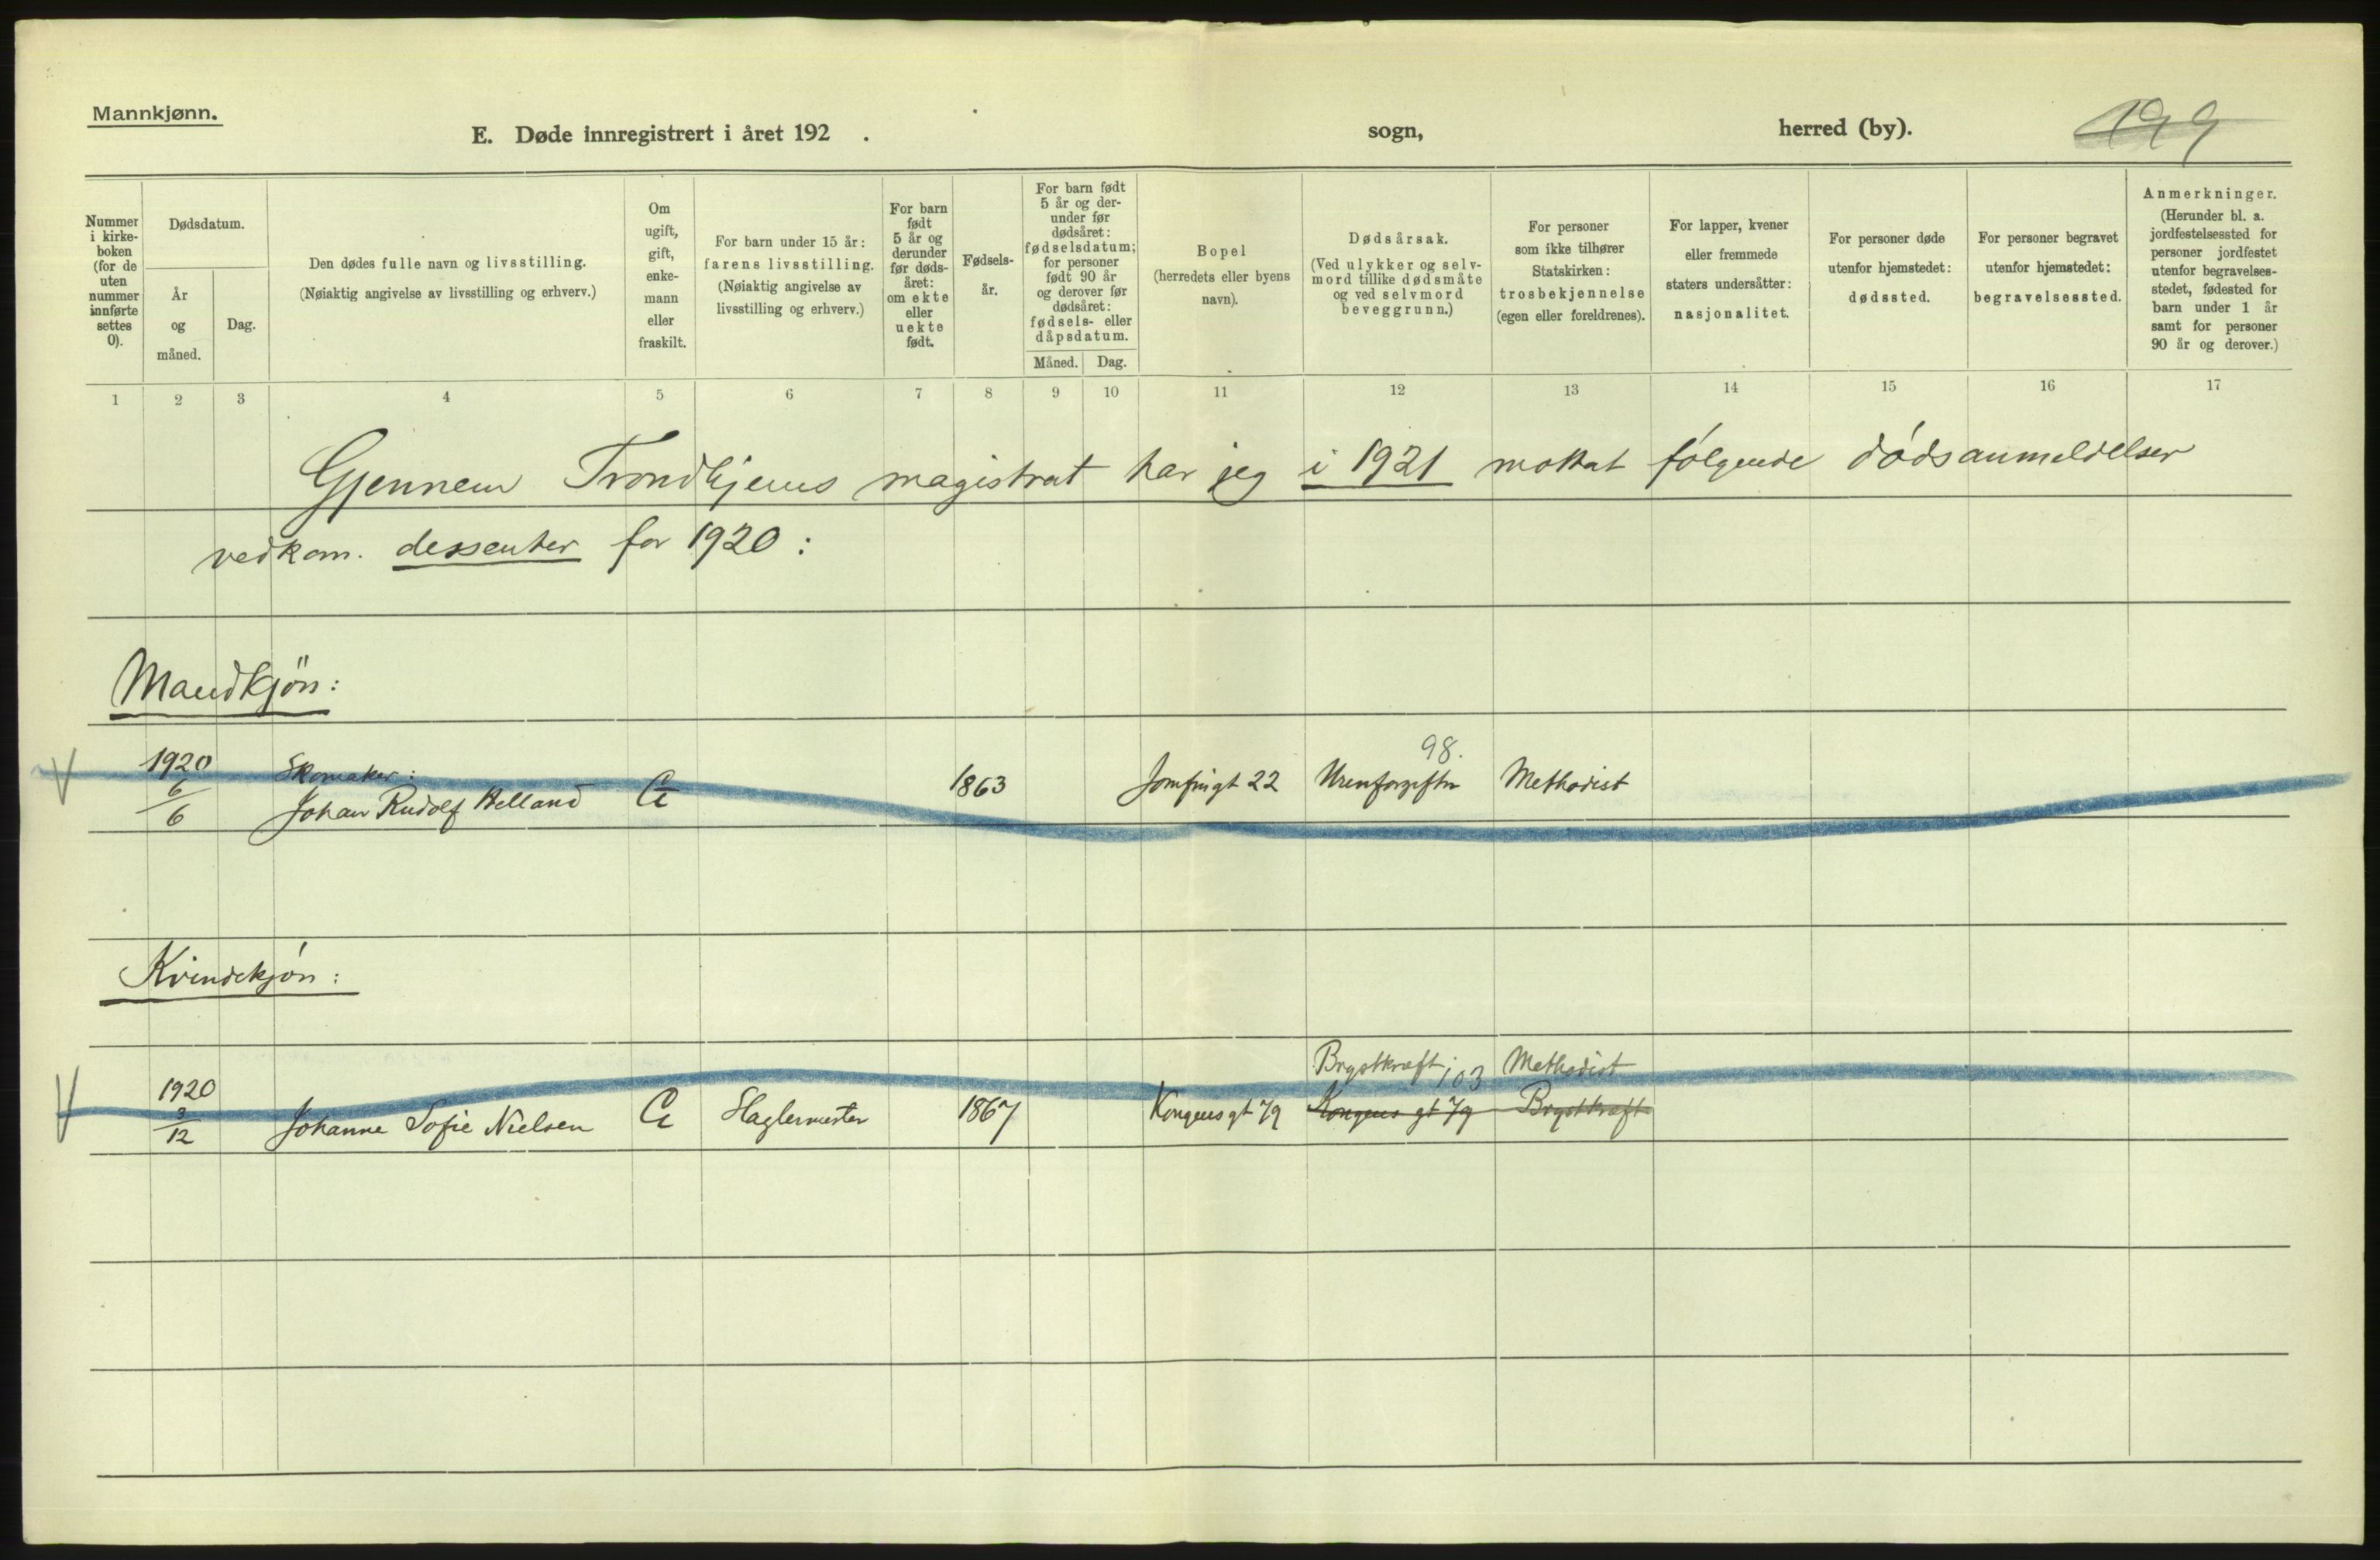 Mannkjønn.
E. Døde innregistrert i året 192 . sogn, herred (by).
199
Nummer
i kirke-
boken
(for de
uten
nummer
innførte
settes
0).
Dødsdatum.
År
og
måned.
Dag.
Den dødes fulle navn og livsstilling.
(Nøiaktig angivelse av livsstilling og erhverv.)
Om
ugift,
gift,
enke-
mann
eller
fraskilt.
For barn under 15 år:
farens livsstilling.
(Nøiaktig angivelse av
livsstilling og erhverv.)
For barn
født
5 år og
derunder
før døds-
året:
om ekte
eller
uekte
født.
Fødsels-
år.
For barn født
5 år og der-
under før
dødsåret:
fødselsdatum;
for personer
født 90 år
og derover før
dødsåret:
fødsels- eller
dåpsdatum.
Måned. Dag.
Bopel
(herredets eller byens
navn).
Dødsårsak.
(Ved ulykker og selv-
mord tillike dødsmåte
og ved selvmord
beveggrunn.)
For personer
som ikke tilhører
Statskirken:
trosbekjennelse
(egen eller foreldrenes).
For lapper, kvener
eller fremmede
staters undersåtter:
nasjonalitet.
For personer døde
utenfor hjemstedet:
dødssted.
For personer begravet
utenfor hjemstedet:
begravelsessted.
Anmerkninger.
(Herunder bl. a.
jordfestelsessted for
personer jordfestet
utenfor begravelses-
stedet, fødested for
barn under 1 år
samt for personer
90 år og derover.)
1 2 3 4 5 6 7 8 9 10 11 12 13 14 15 16 17
Gjennem Trondhjems magistrat har jeg i 1921 mottat følgende dødsanmeldelser
vedkom. dessenter for 1920:
Mandkjön:
1920 Skomaker: 98.
6/6 Johan Rudolf Helland G 1863 Jomfrugt 22 Urenforgiftn Methodist
Kvindekjøn:
1920 Brystkræft 103 Methodist
3/12 Johanne Sofie Nielsen G 1867 Kongensgt 79 Kongens gt 79 Brystkræft